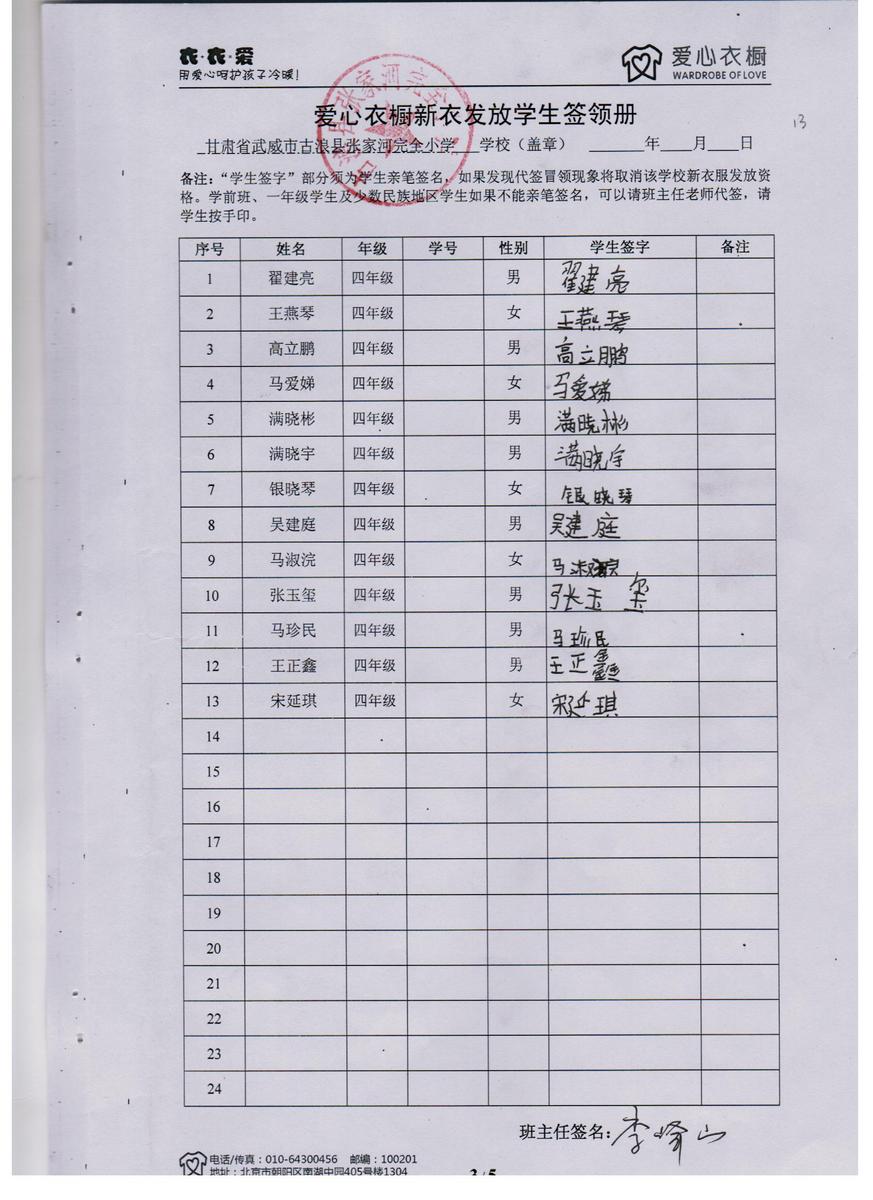 衣·衣·爱
用爱心呵护孩子冷暖!
爱心衣橱
WARDROBE OF LOVE
13
爱心衣橱新衣发放学生签领册
甘肃省武威市古浪县张家河完全小学 学校（盖章） 年 月 日
备注：“学生签字”部分须为学生亲笔签名，如果发现代签冒领现象将取消该学校新衣服发放资
格。学前班、一年级学生及少数民族地区学生如果不能亲笔签名，可以请班主任老师代签，请
学生按手印。
序号 姓名 年级 学号 性别 学生签字 备注
1 翟建亮 四年级 男 翟建亮
2 王燕琴 四年级 女 王燕琴
3 高立鹏 四年级 男 高立鹏
4 马爱娣 四年级 女 马爱娣
5 满晓彬 四年级 男 满晓彬
6 满晓宇 四年级 男 满晓宇
7 银晓琴 四年级 女 银晓琴
8 吴建庭 四年级 男 吴建庭
9 马淑浣 四年级 女 马淑浣
10 张玉玺 四年级 男 张玉玺
11 马珍民 四年级 男 马珍民
12 王正鑫 四年级 男 王正鑫
13 宋延琪 四年级 女 宋延琪
14
15
16
17
18
19
20
21
22
23
24
班主任签名：李峰山
电话/传真：010-64300456 邮编：100201
地址：北京市朝阳区南湖中园405号楼1304
3/5